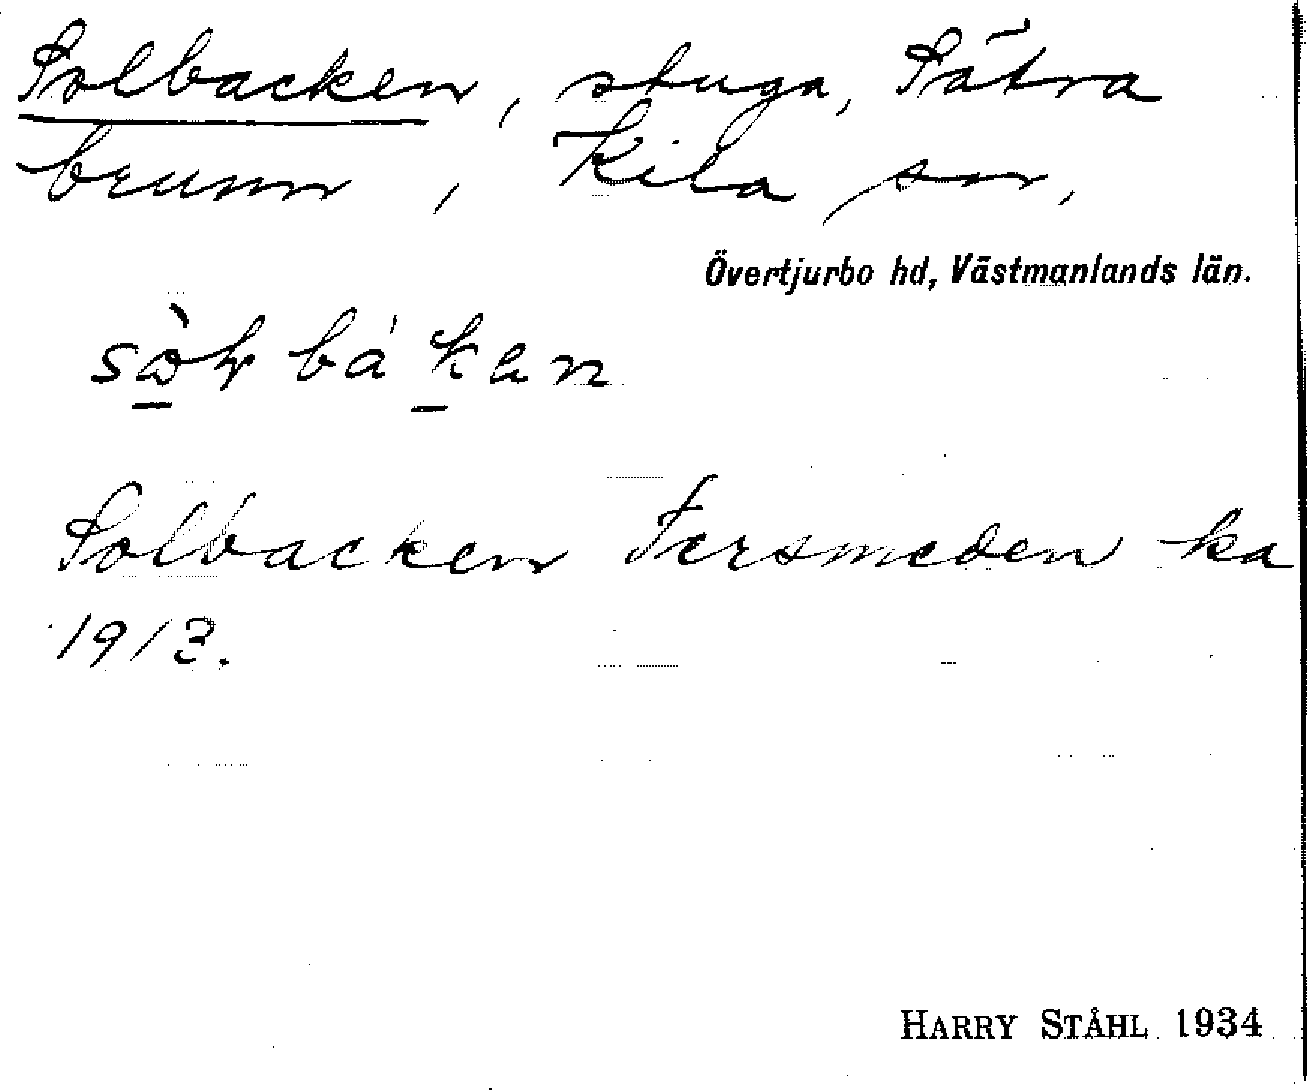 Solbacken, stuga, Sätra
brunn, Kila sn,
Övertjurbo hd, Västmanlands län.
Solbacken Fersmeden ka
1913.
HARRY STÅHL 1934